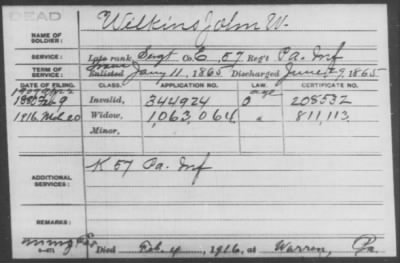 DEAD
NAME OF SOLDIER: Wilkins John W.
SERVICE: Late rank, Sergt Co. E, 57 Reg't Pa. Inf
TERM OF SERVICE: Enlisted Jany 11, 1865 Discharged June 29, 1865
DATE OF FILING. CLASS. APPLICATION NO. LAW. CERTIFICATE NO.
age
Invalid, 344924 208532
1916. Mch 20 Widow, 1,063,064 " 811,113
Minor,
ADDITIONAL SERVICES: K 57 Pa. Inf
REMARKS:
Died Feb. 4, 1916, at Warren, Pa.